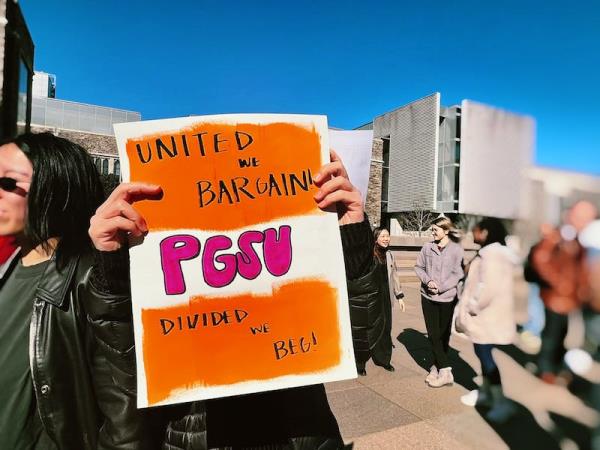 UNITED WE
BARGAIN!
PGSU
DIVIDED WE
BEG!